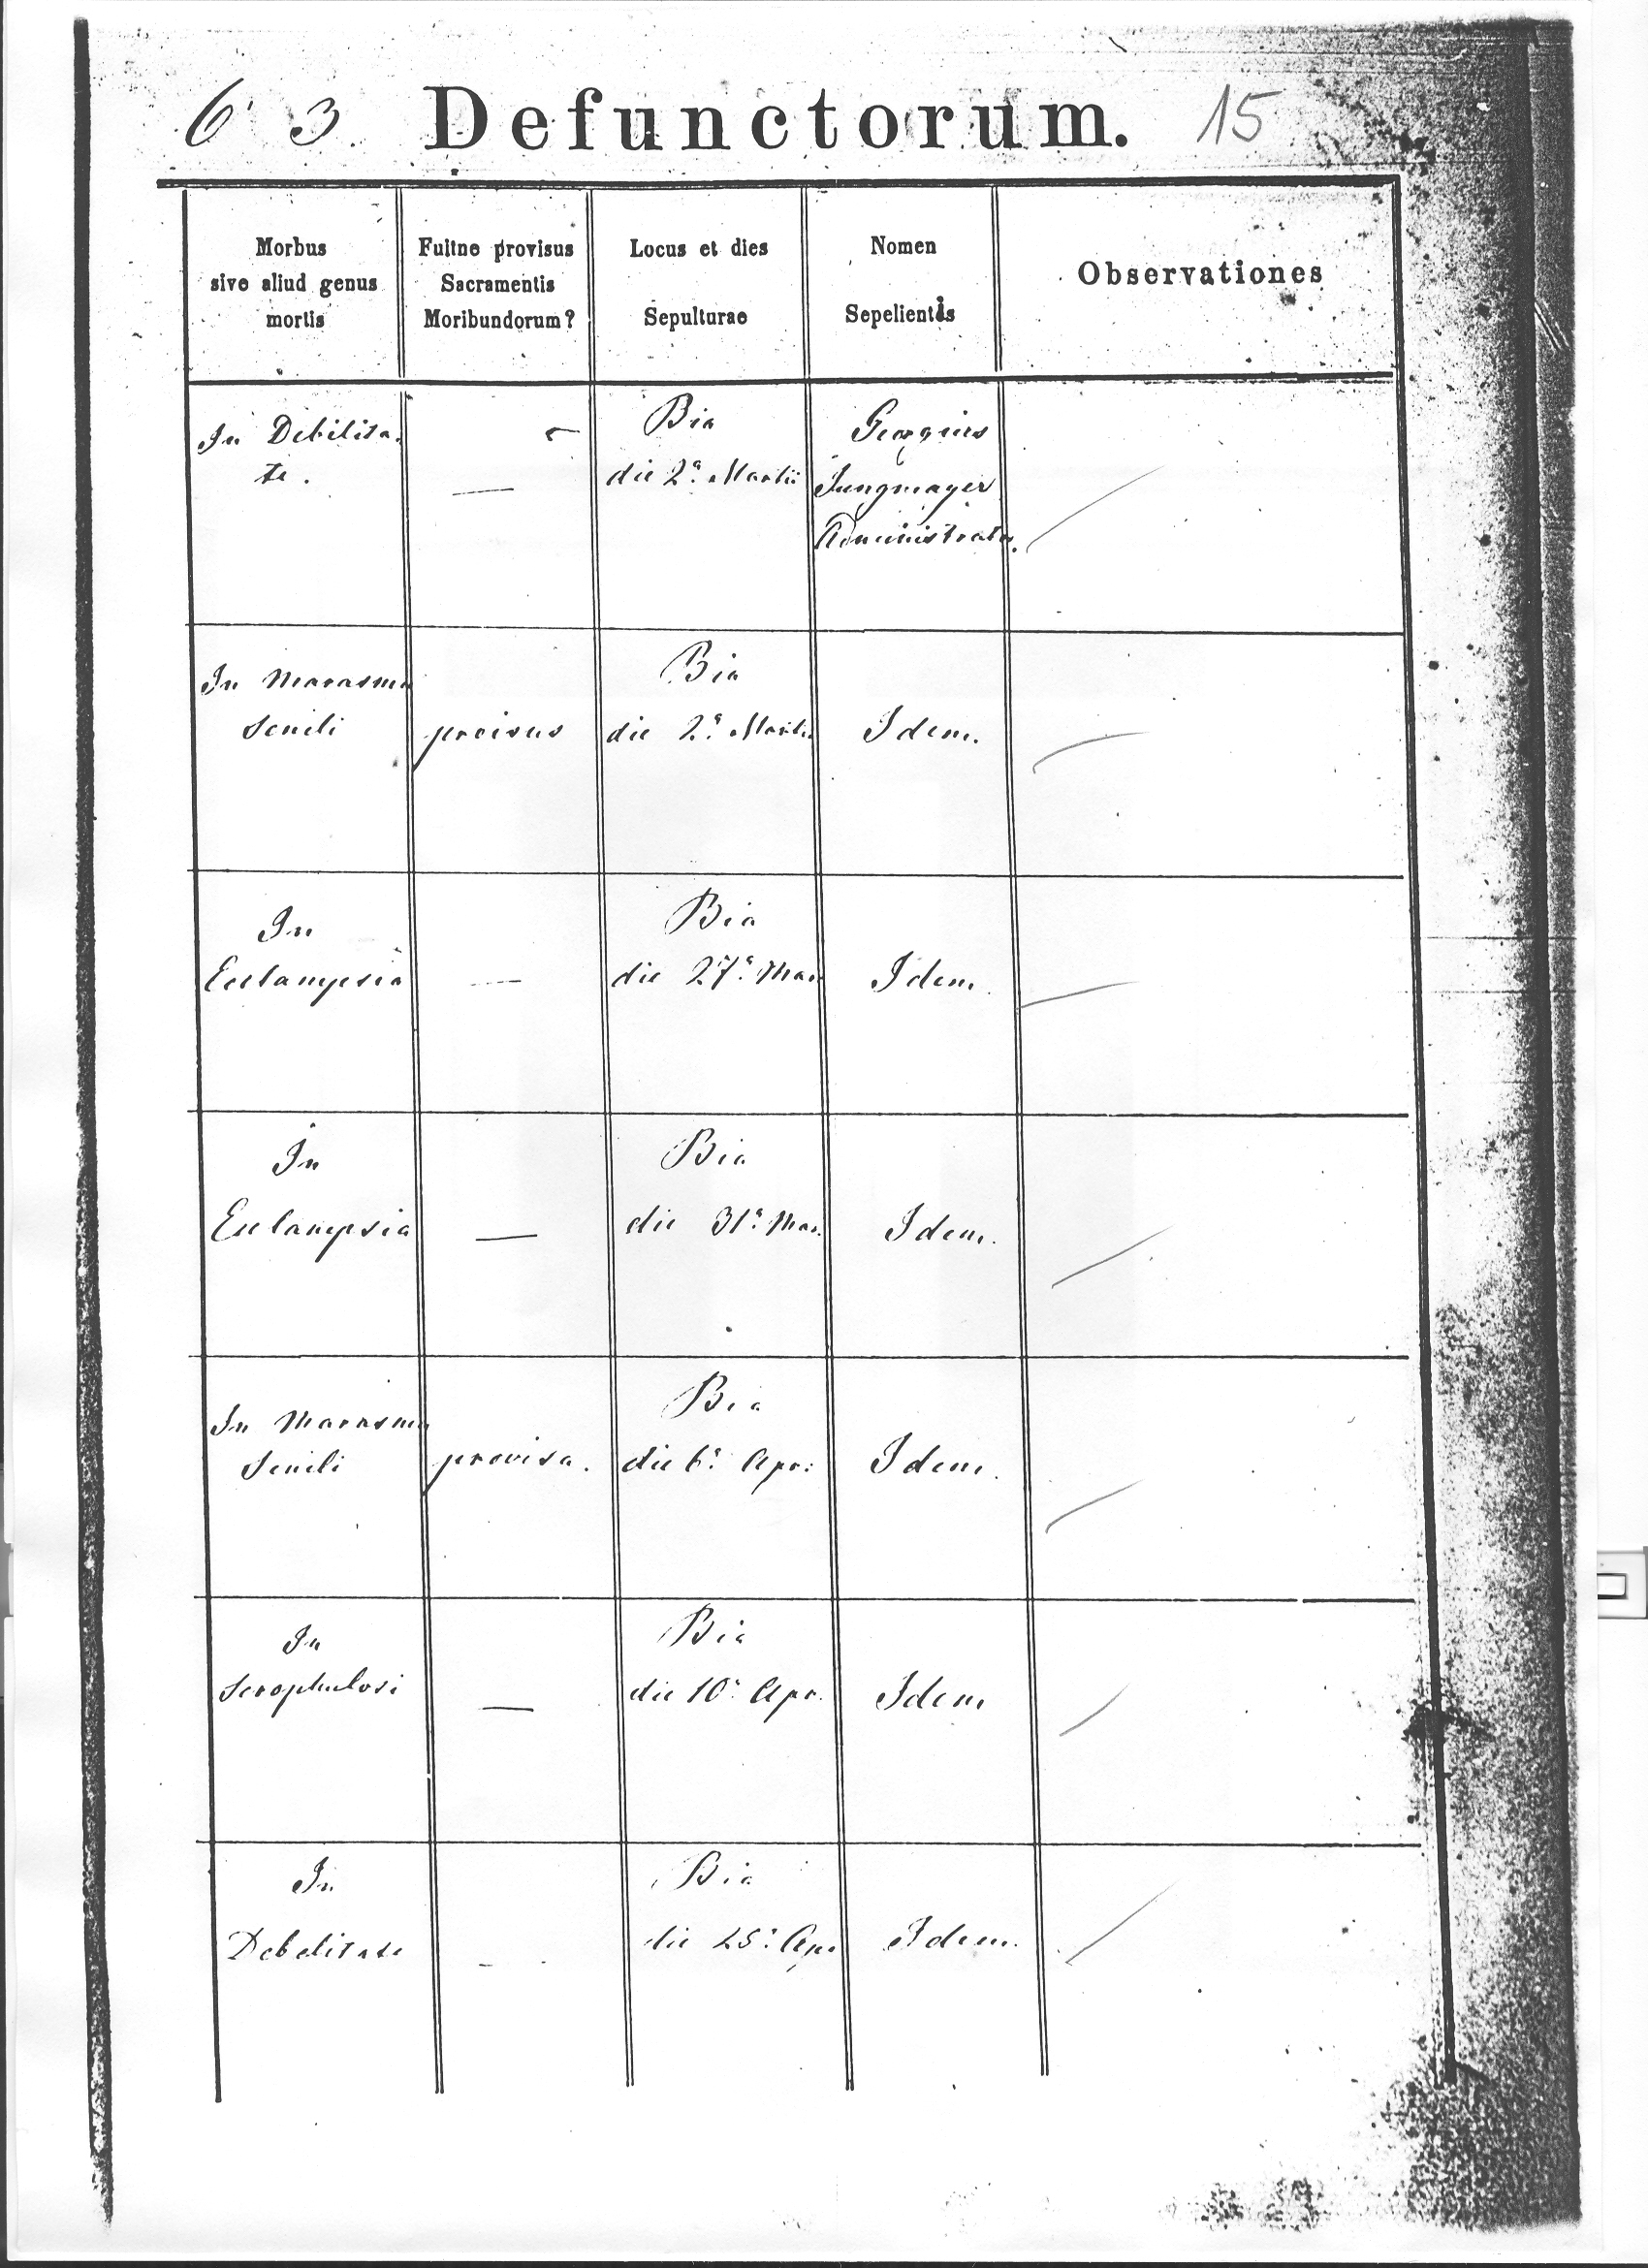 63 Defunctorum. 15
Morbus
sive aliud genus
mortis
Fuitne provisus
Sacramentis
Moribundorum?
Locus et dies
Sepulturae
Nomen
Sepelientis
Observationes
In Debilita-
te.
—
Bia
die 2a Martii
Georgius
Jungmayer
Administrator.
In Marasmo
Senili
proisus
Bia
die 2a Martii
Idem.
In
Eclampsia
—
Bia
die 27a Mar.
Idem.
In
Eclampsia
—
Bia
die 31a Mar.
Idem.
In Marasmo
Senili
provisa.
Bia
die 6a Apr:
Idem.
In
Scrophulosi
—
Bia
die 10a Apr.
Idem
In
Debelitate
-
Bia
die 25a Apr
Idem.